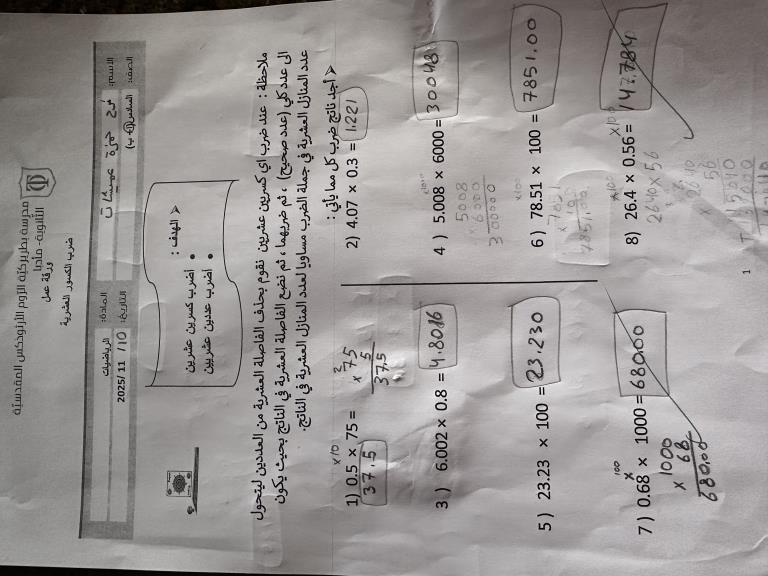 مدرسة بطريركية الروم الأرثوذكس المقدسية
الثانوية- مادبا
ورقة عمل
ضرب الكسور العشرية
الاسم: فرح حمزة
المادة: الرياضيات
الصف: السادس (أ + ب)
التاريخ: 10/ 11 /2025
الهدف :
اضرب كسرين عشريين
اضرب عددين عشريين
ملاحظة : عند ضرب اي كسرين عشريين نقوم بحذف الفاصلة العشرية من العددين ليتحول
الى عدد كلي (عدد صحيح) ، ثم نضربهما ، ثم نضع الفاصلة العشرية في الناتج بحيث يكون
عدد المنازل العشرية في جملة الضرب مساويا لعدد المنازل العشرية في الناتج.
أجد ناتج ضرب كل مما يأتي :
×10
1) 0.5 × 75 =
37.5
2
75
× 5
37.5
2) 4.07 × 0.3 = 1.221
3 ) 6.002 × 0.8 = 4.8016
4 ) 5.008 × 6000 = 30048
×1000
5008
× 6000
300000
5 ) 23.23 × 100 = 23.230
6 ) 78.51 × 100 = 7851.00
×100
7851
× 100
7851.00
7 ) 0.68 × 1000 = 680.00
×100
1000
× 68
680.00
8) 26.4 × 0.56 = 147.784
×100
×100
2640 × 56
2640
× 56
15040
1